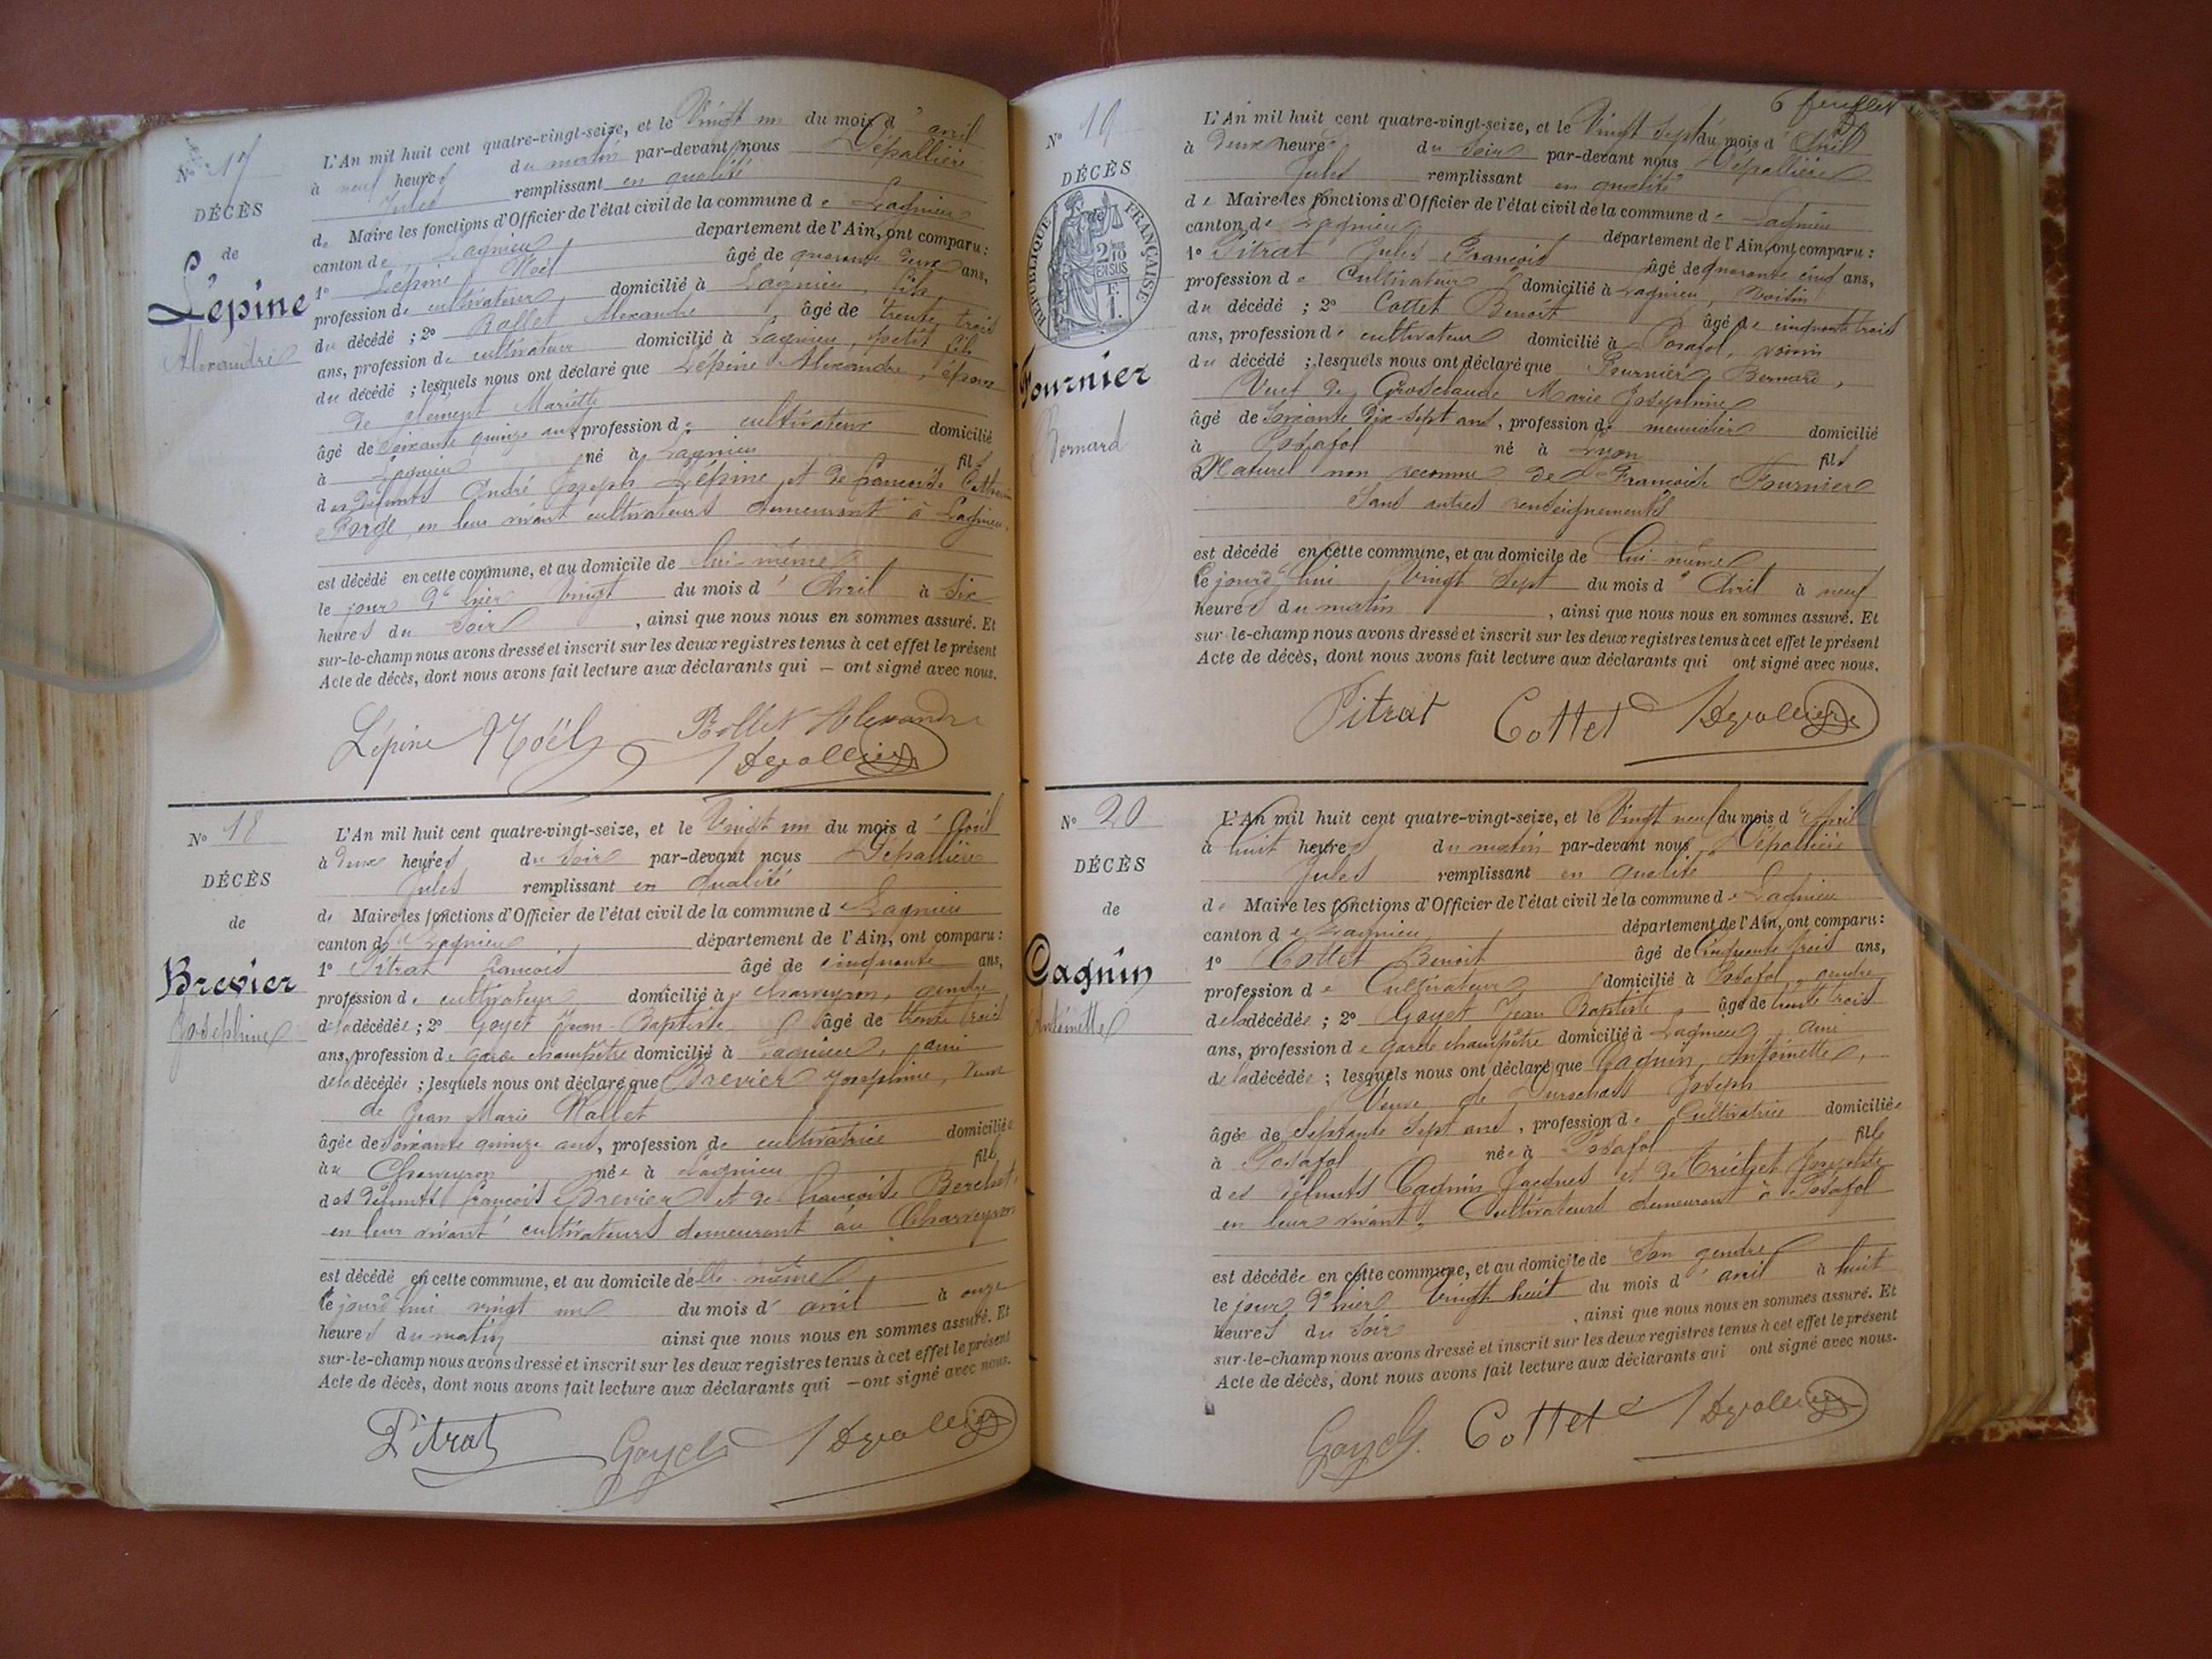 N° 17
DÉCÈS
de
Lépine
Alexandre
L'An mil huit cent quatre-vingt-seize, et le Vingt un du mois d' avril
à neuf heures du matin par-devant nous Dépallière
Jules remplissant en qualité
de Maire les fonctions d'Officier de l'état civil de la commune de Lagnieu
canton de Lagnieu département de l'Ain, ont comparu :
1° Lépine Noël âgé de quarante deux ans,
profession de cultivateur, domicilié à Lagnieu, fils
du décédé ; 2° Rollet Alexandre âgé de trente trois
ans, profession de cultivateur domicilié à Lagnieu, petit fils
du décédé ; lesquels nous ont déclaré que Lépine Alexandre, époux
de Clément Mariette
âgé de soixante quinze ans, profession de cultivateur domicilié
à Lagnieu né à Lagnieu fils
des défunts André Joseph Lépine et de Françoise Catherine
Forge, en leur vivant cultivateurs demeurant à Lagnieu,
est décédé en cette commune, et au domicile de lui-même
le jour d'hier vingt du mois d' Avril à six
heures du soir, ainsi que nous nous en sommes assuré. Et
sur-le-champ nous avons dressé et inscrit sur les deux registres tenus à cet effet le présent
Acte de décès, dont nous avons fait lecture aux déclarants qui — ont signé avec nous.
Lépine Noël Rollet Alexandre
JDépallière
N° 18
DÉCÈS
de
Brevier
Joséphine
L'An mil huit cent quatre-vingt-seize, et le Vingt un du mois d' Avril
à deux heures du soir par-devant nous Dépallière
Jules remplissant en qualité
de Maire les fonctions d'Officier de l'état civil de la commune de Lagnieu
canton de Lagnieu département de l'Ain, ont comparu :
1° Pitrat François âgé de cinquante ans,
profession de cultivateur domicilié à Charveyron, gendre
de la décédée ; 2° Goyet Jean-Baptiste âgé de trente trois
ans, profession de garde champêtre domicilié à Lagnieu, ami
de la décédée ; lesquels nous ont déclaré que Brevier Joséphine, veuve
de Jean Marie Nallet
âgée de soixante quinze ans, profession de cultivatrice domiciliée
au Charveyron née à Lagnieu fille
des défunts François Brevier et de Françoise Berchet,
en leur vivant cultivateurs demeurant au Charveyron
est décédé en cette commune, et au domicile d'elle-même
le jourd'hui vingt un du mois d' avril à onze
heures du matin ainsi que nous nous en sommes assuré. Et
sur-le-champ nous avons dressé et inscrit sur les deux registres tenus à cet effet le présent
Acte de décès, dont nous avons fait lecture aux déclarants qui — ont signé avec nous.
Pitrat Goyet JDépallière
6 feuillet
N° 19
DÉCÈS
RÉPUBLIQUE FRANÇAISE
2/10 EN SUS
F. 1.
Fournier
Bernard
L'An mil huit cent quatre-vingt-seize, et le Vingt Sept du mois d' Avril
à Deux heures du Soir par-devant nous Dépallière
Jules remplissant en qualité
de Maire les fonctions d'Officier de l'état civil de la commune de Lagnieu
canton de Lagnieu département de l'Ain, ont comparu :
1° Pitrat Jules François âgé de quarante cinq ans,
profession de Cultivateur domicilié à Lagnieu, Voisin
du décédé ; 2° Cottet Benoît âgé de cinquante trois
ans, profession de cultivateur domicilié à Posafol, voisin
du décédé ; lesquels nous ont déclaré que Fournier Bernard,
Veuf de Grosclaude Marie Joséphine
âgé de Soixante Dix-Sept ans, profession de meunier domicilié
à Posafol né à Lyon fils
Naturel non reconnu de Françoise Fournier
Sans autres renseignements
est décédé en cette commune, et au domicile de lui-même
le jourd'hui Vingt Sept du mois d' Avril à neuf
heures du matin, ainsi que nous nous en sommes assuré. Et
sur-le-champ nous avons dressé et inscrit sur les deux registres tenus à cet effet le présent
Acte de décès, dont nous avons fait lecture aux déclarants qui ont signé avec nous.
Pitrat Cottet JDépallière
N° 20
DÉCÈS
de
Cagnin
Antoinette
L'An mil huit cent quatre-vingt-seize, et le Vingt neuf du mois d' Avril
à huit heures du matin par-devant nous Dépallière
Jules remplissant en qualité
de Maire les fonctions d'Officier de l'état civil de la commune de Lagnieu
canton de Lagnieu département de l'Ain, ont comparu :
1° Cottet Benoît âgé de Cinquante trois ans,
profession de Cultivateur domicilié à Posafol, gendre
de la décédée ; 2° Goyet Jean Baptiste âgé de trente trois
ans, profession de garde champêtre domicilié à Lagnieu, ami
de la décédée ; lesquels nous ont déclaré que Cagnin, Antoinette,
Veuve de Joseph
âgée de Septante Sept ans, profession de Cultivatrice domiciliée
à Posafol née à Posafol fille
des défunts Cagnin Jacques et de Josephte
en leur vivant, Cultivateurs demeurant à Posafol
est décédée en cette commune, et au domicile de Son gendre
le jour d'hier Vingt huit du mois d' avril à huit
heures du soir, ainsi que nous nous en sommes assuré. Et
sur-le-champ nous avons dressé et inscrit sur les deux registres tenus à cet effet le présent
Acte de décès, dont nous avons fait lecture aux déclarants qui ont signé avec nous.
Goyet Cottet JDépallière